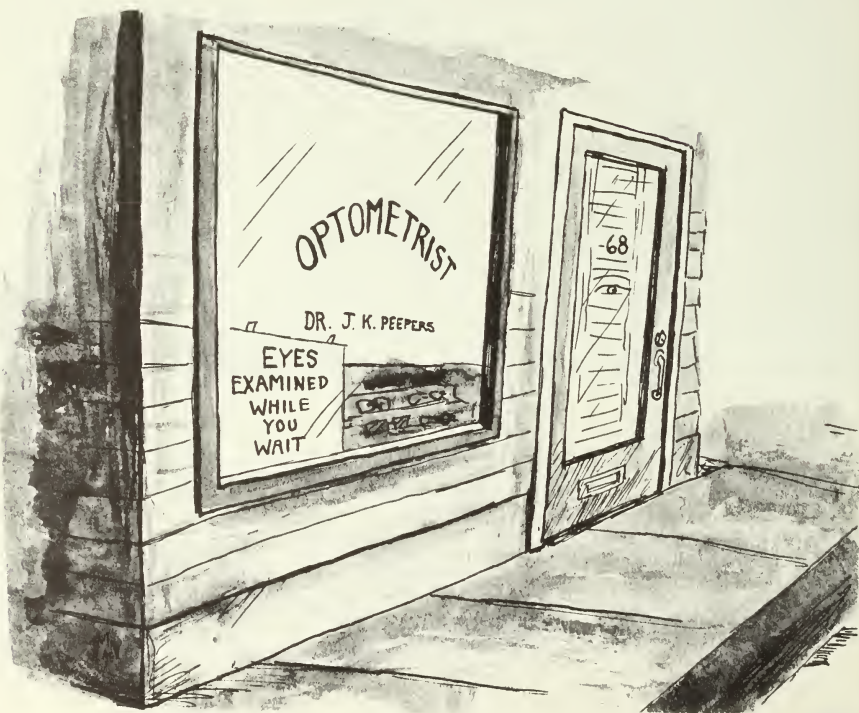 OPTOMETRIST
DR. J. K. PEEPERS
EYES
EXAMINED
WHILE
YOU
WAIT
68